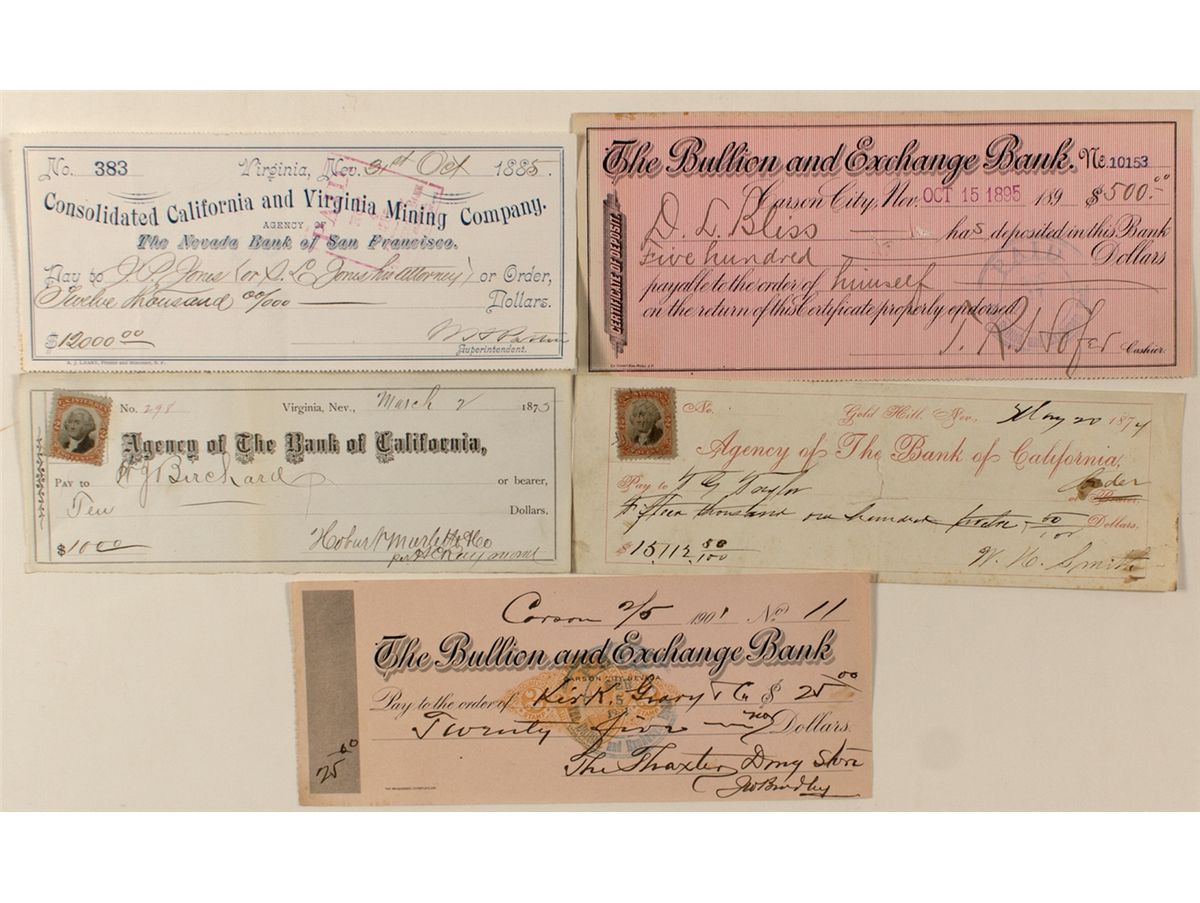 No. 383 Virginia, Nev. 31st Oct 1885.
Consolidated California and Virginia Mining Company.
AGENCY OF
The Nevada Bank of San Francisco.
Pay to J. P. Jones (or S. L. Jones his attorney) or Order,
Twelve thousand 00/100 Dollars.
$12000 00
Superintendent.
PAID
The Bullion and Exchange Bank. No. 10153
Carson City, Nev. OCT 15 1895 189 $500.00
D. L. Bliss has deposited in this Bank
Five hundred Dollars
payable to the order of himself
on the return of this Certificate properly endorsed
Cashier.
CERTIFICATE OF DEPOSIT
PAID
No. 298 Virginia, Nev., March 2 1875
Agency of The Bank of California,
PAY TO A J Birchard or bearer,
Ten Dollars.
$10 00
Hobart & Marlette & Co
per H C Raymond
No. Gold Hill, Nev. May 20 1874
Agency of The Bank of California,
Pay to T G Taylor or Bearer, order
Fifteen thousand one hundred twelve 50/100 Dollars,
$15,112 50/100
W. H. Smith
Carson 2/5 1901 No. 11
The Bullion and Exchange Bank
CARSON CITY, NEVADA
Pay to the order of Kirk, Geary & Co $25 00
Twenty five no Dollars.
The Thaxter Drug Store
25 00